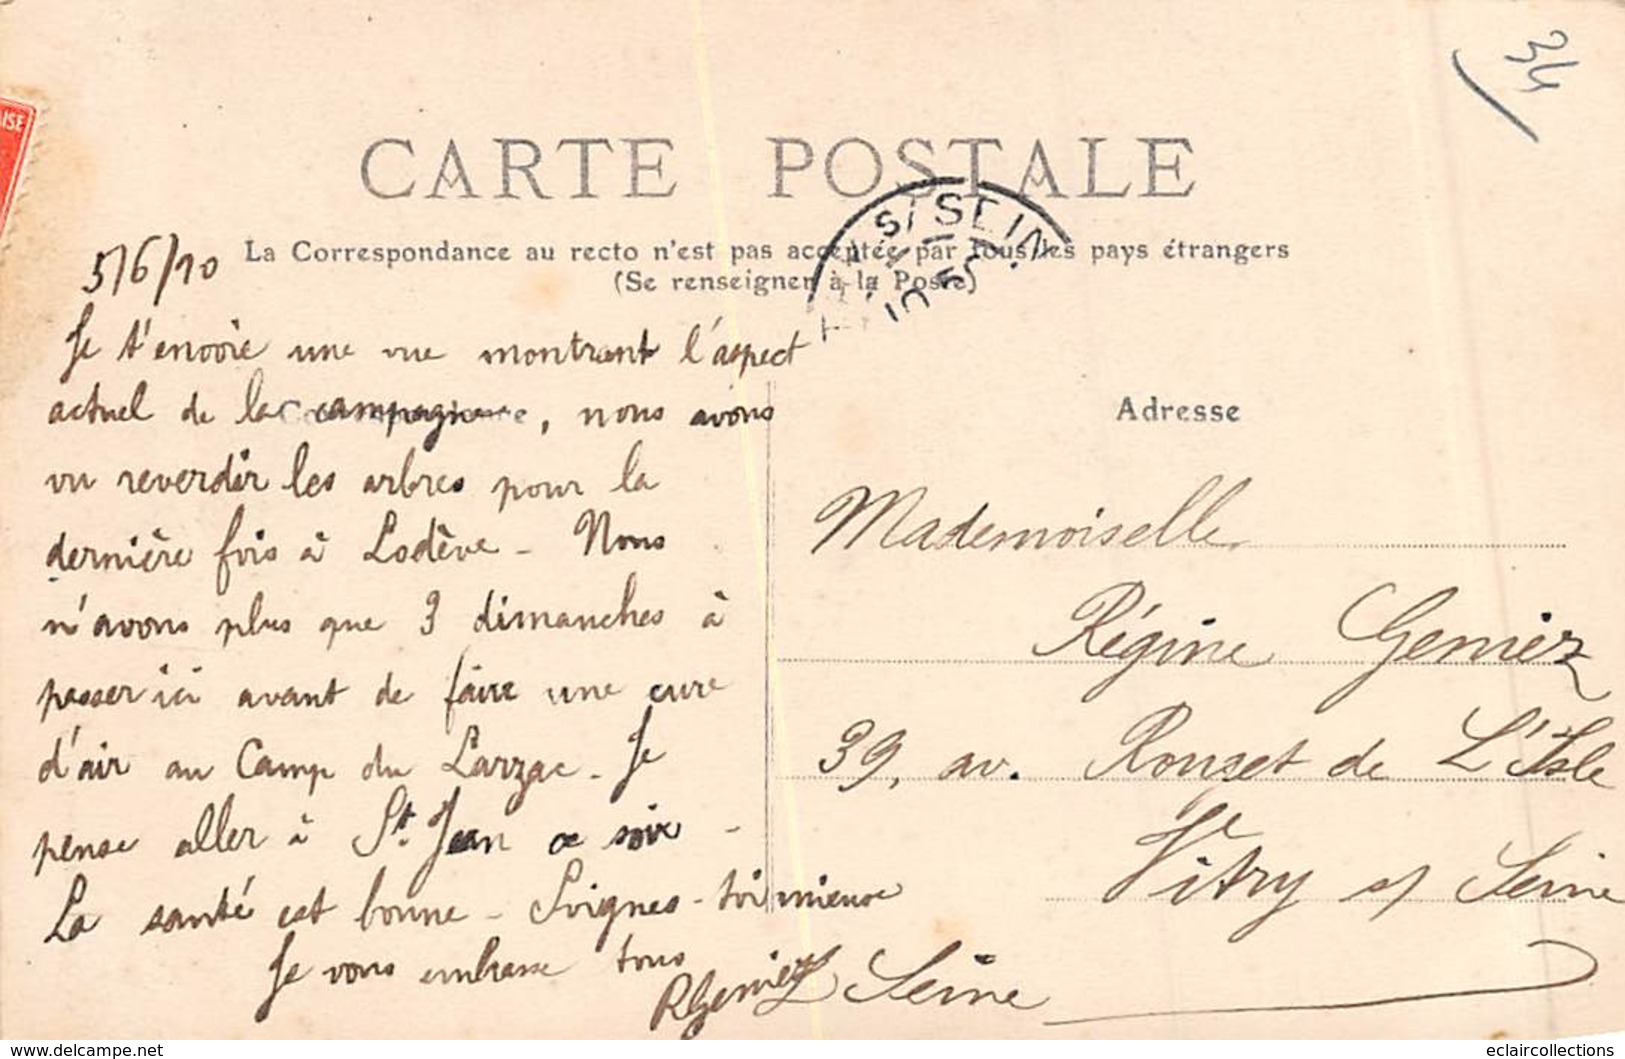 34
AISE
CARTE POSTALE
La Correspondance au recto n'est pas acceptée par tous les pays étrangers
(Se renseigner à la Poste)
S/ SEIN
5/6/10
Je t'envoie une vue montrant l'aspect
actuel de la campagne, nous avons
vu reverdir les arbres pour la
dernière fois à Lodève - Nous
n'avons plus que 3 dimanches à
passer ici avant de faire une cure
d'air au Camp du Larzac - Je
pense aller à St Jean ce soir -
La santé est bonne - Soignes-toi mieux
Je vous embrasse tous
RGeniez
Adresse
Mademoiselle
Régine Geniez
39, av. Rouget de L'Isle
Vitry s/ Seine
Seine
www.delcampe.net
eclaircollections